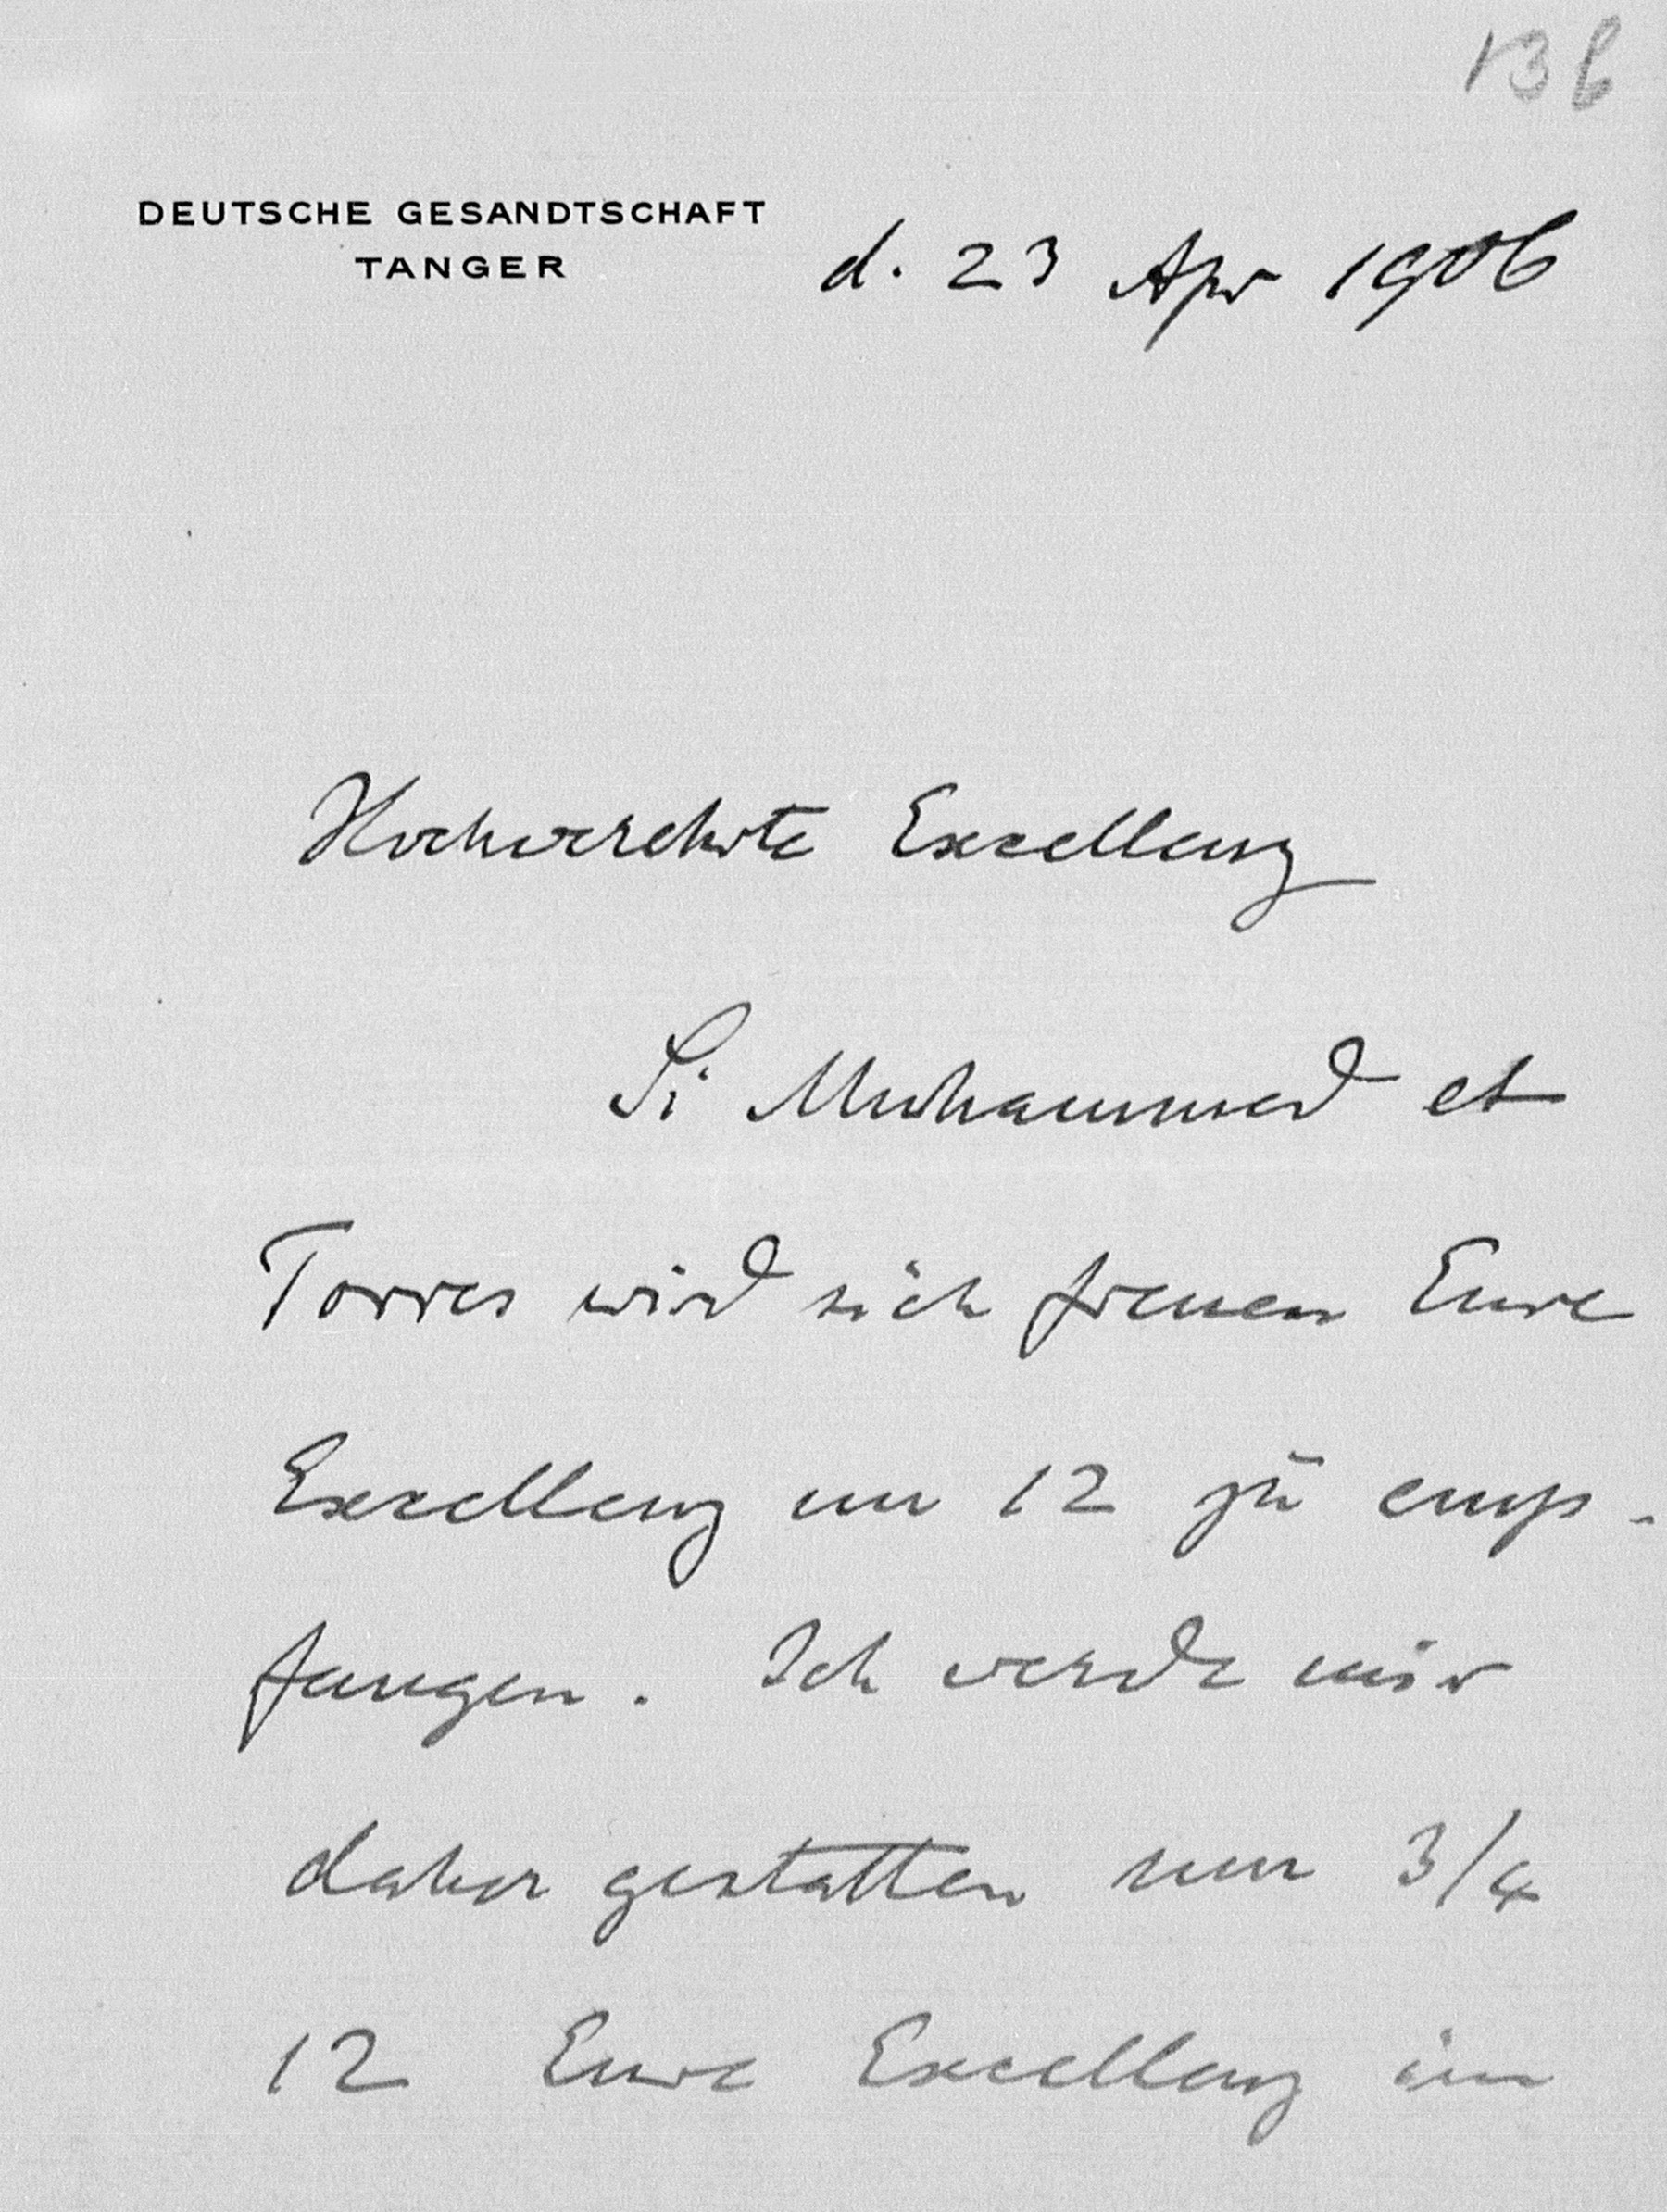 136
DEUTSCHE GESANDTSCHAFT
TANGER
d. 23 Apr 1906
Hochverehrte Excellenz
Si Muhammed et
Torres wird sich freuen Eure
Excellenz um 12 zu emp-
fangen. Ich werde mir
daher gestatten um 3/4
12 Eure Excellenz im